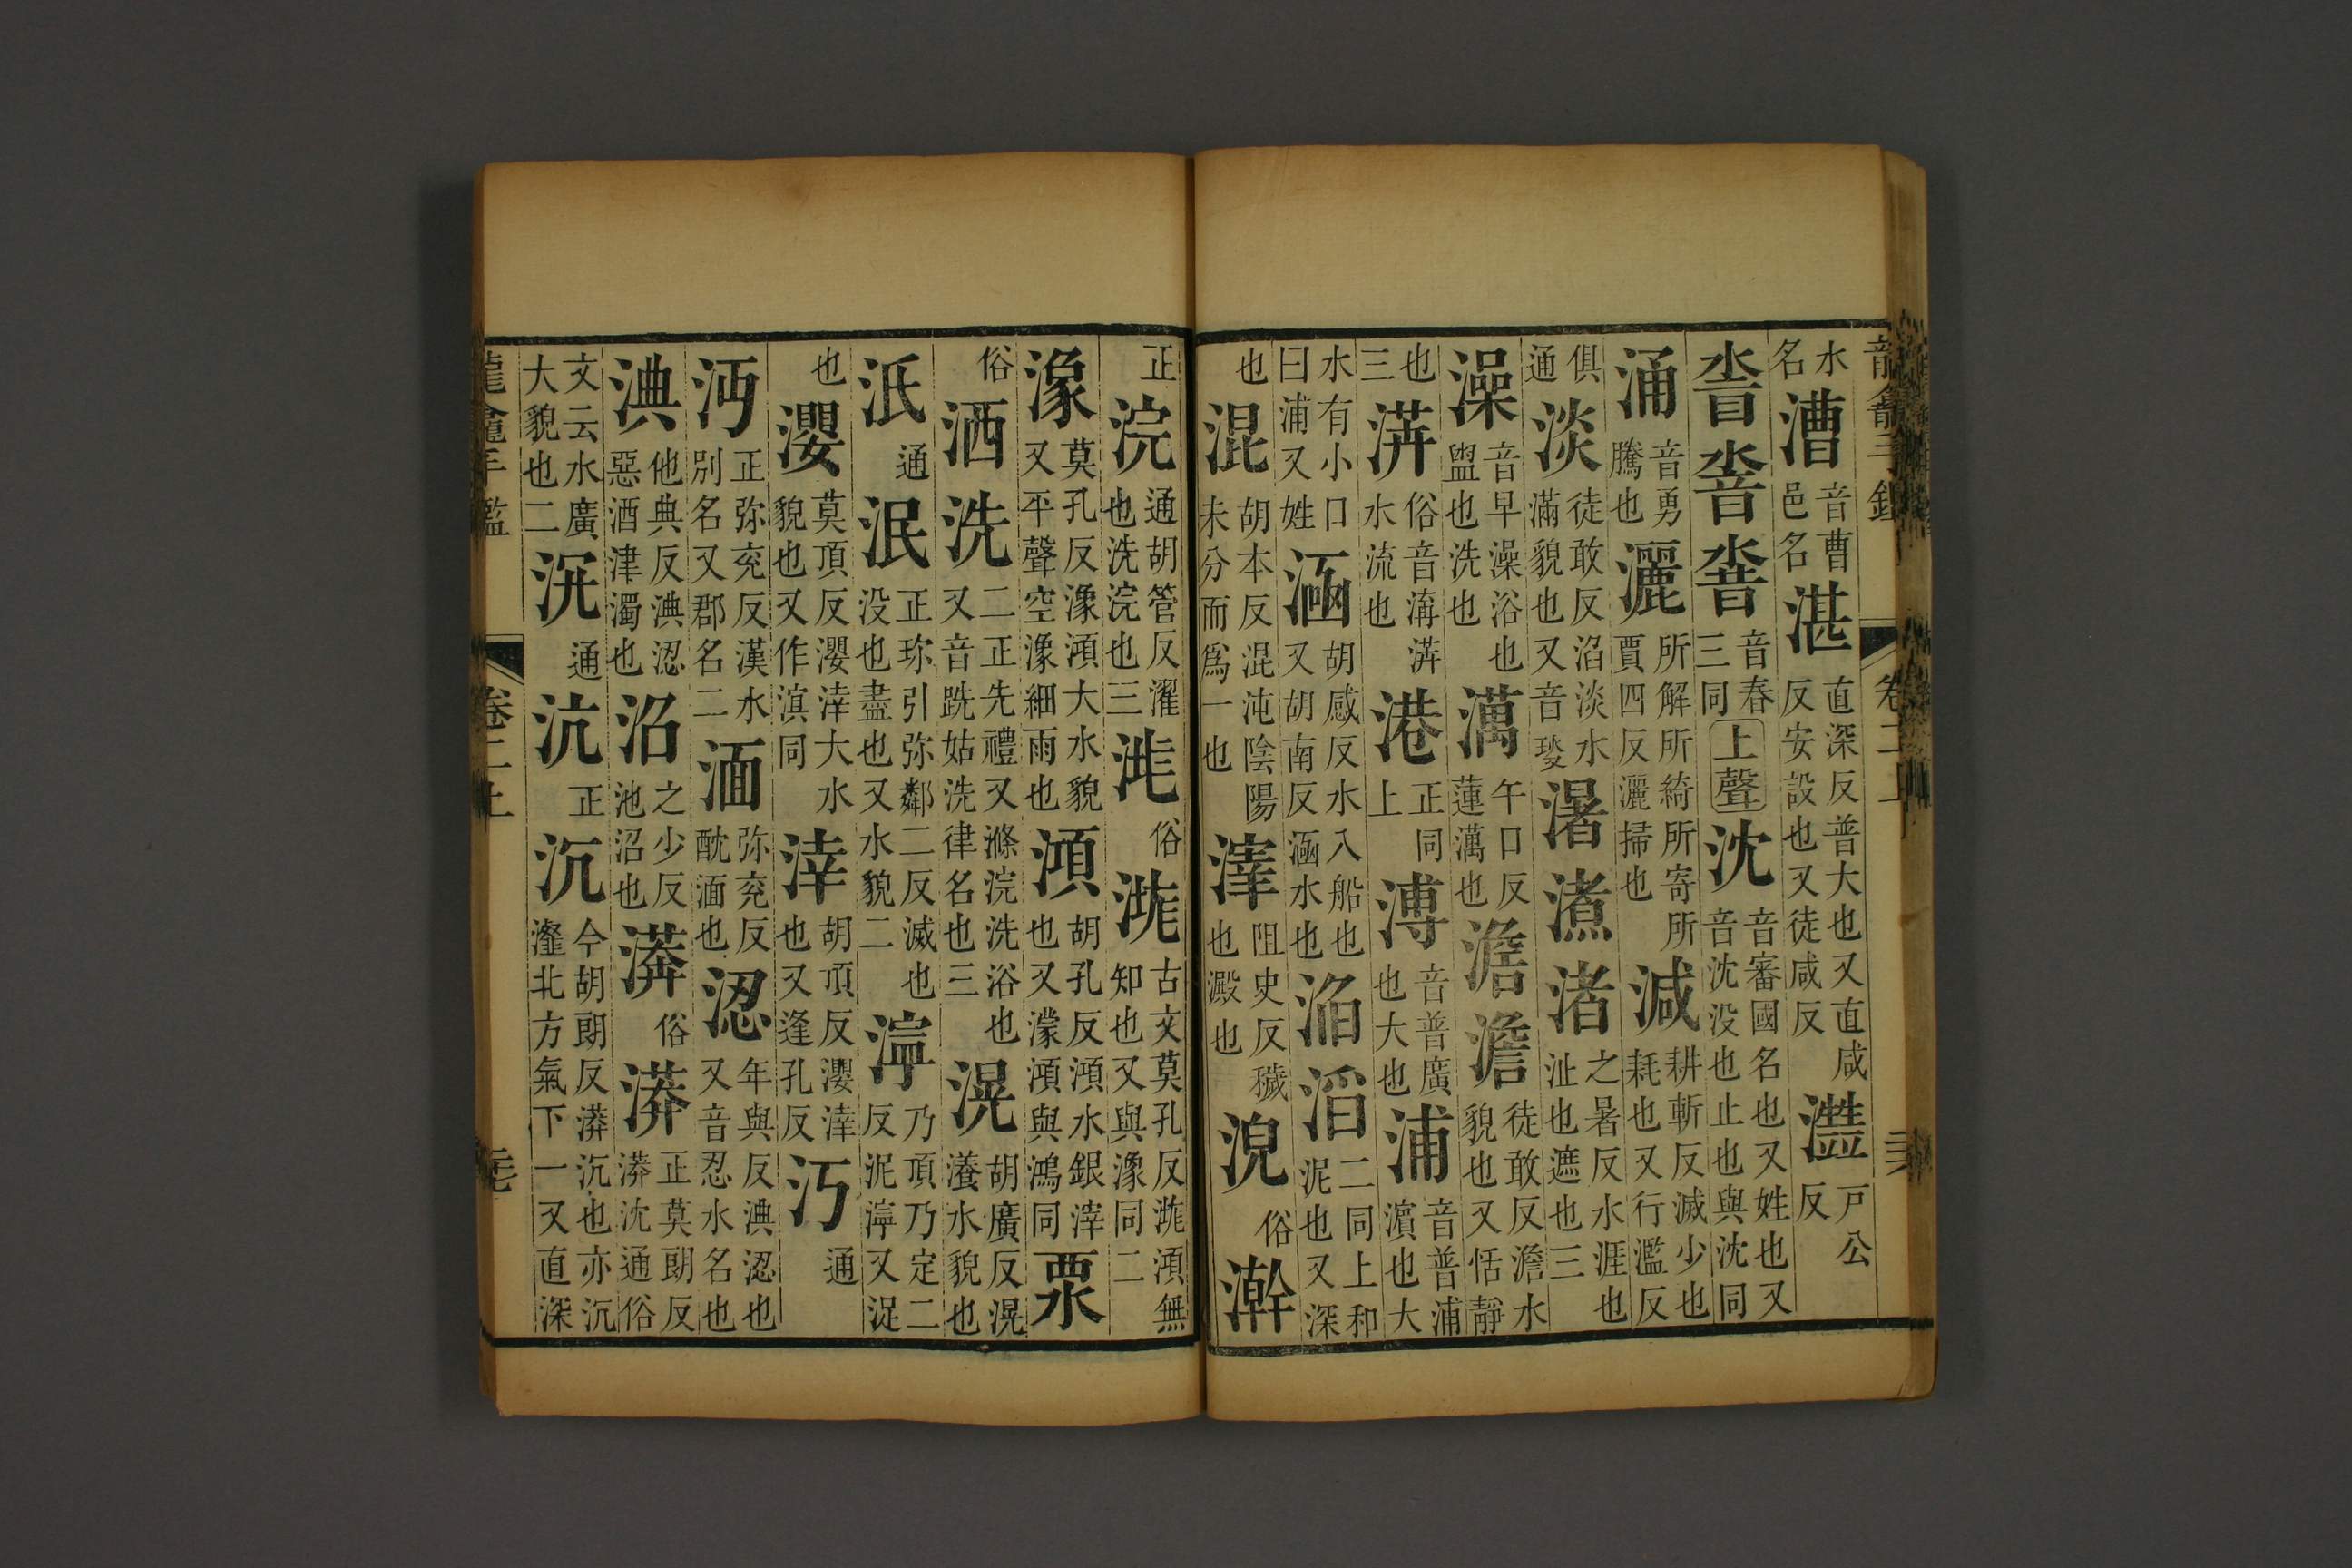 龍龕手鑑 卷二上
水名漕音曹邑名湛直深反普大也又直咸反安設也又徒咸反灆戸公反
三同音春上聲沈音審國名也又姓也又音沈没也止也與沈同
涌音勇騰也灑所解所綺所寄所賈四反灑掃也減耕斬反減少也耗也又行濫反
俱通淡徒敢反淊淡水滿貌也又音琰渚之暑反水涯也沚也遮也三
澡音早澡浴也盥也洗也澫午口反蓮澫也澹澹徒敢反澹水貌也又恬靜
也三漭俗音溝漭水流也港正同上溥音普廣也大也浦音普浦濵也大
水有小口曰浦又姓涵胡感反水入船也又胡南反涵水也淊滔二同上和泥也又深
也混胡本反混沌陰陽未分而爲一也滓阻史反穢也澱也俗澣
正浣通胡管反濯也洗浣也三俗古文莫孔反澒無知也又與濛同二
濛莫孔反濛澒大水貌又平聲空濛細雨也澒胡孔反澒水銀滓也又濛澒與鴻同
俗洒洗二正先禮又滌浣洗浴也又音跣姑洗律名也三滉胡廣反滉瀁水貌也
泜通泯正珎引弥鄰二反滅也没也盡也又水貌二濘乃頂乃定二反泥濘又浞
也㵾莫頂反㵾涬大水貌也又作溟同涬胡頂反㵾涬也又逢孔反沔通
沔正弥兖反漢水別名又郡名二湎弥兖反酖湎也涊年與反淟涊也又音忍水名也
淟他典反淟涊惡酒津濁也沼之少反池沼也漭俗漭正莫朗反漭沆通俗
文云水廣大貌也二沆通沆正沆今胡朗反漭沆也亦沆瀣北方氣下一又直深
龍龕手鑑 卷二上